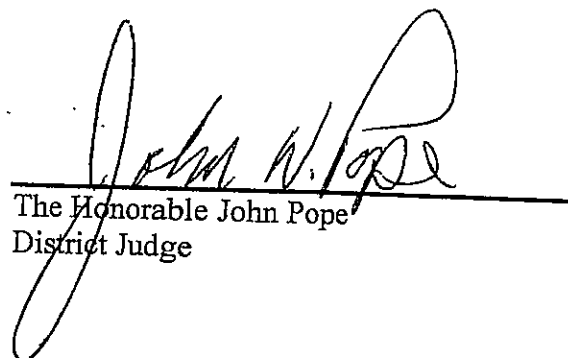 John W. Pope
The Honorable John Pope
District Judge